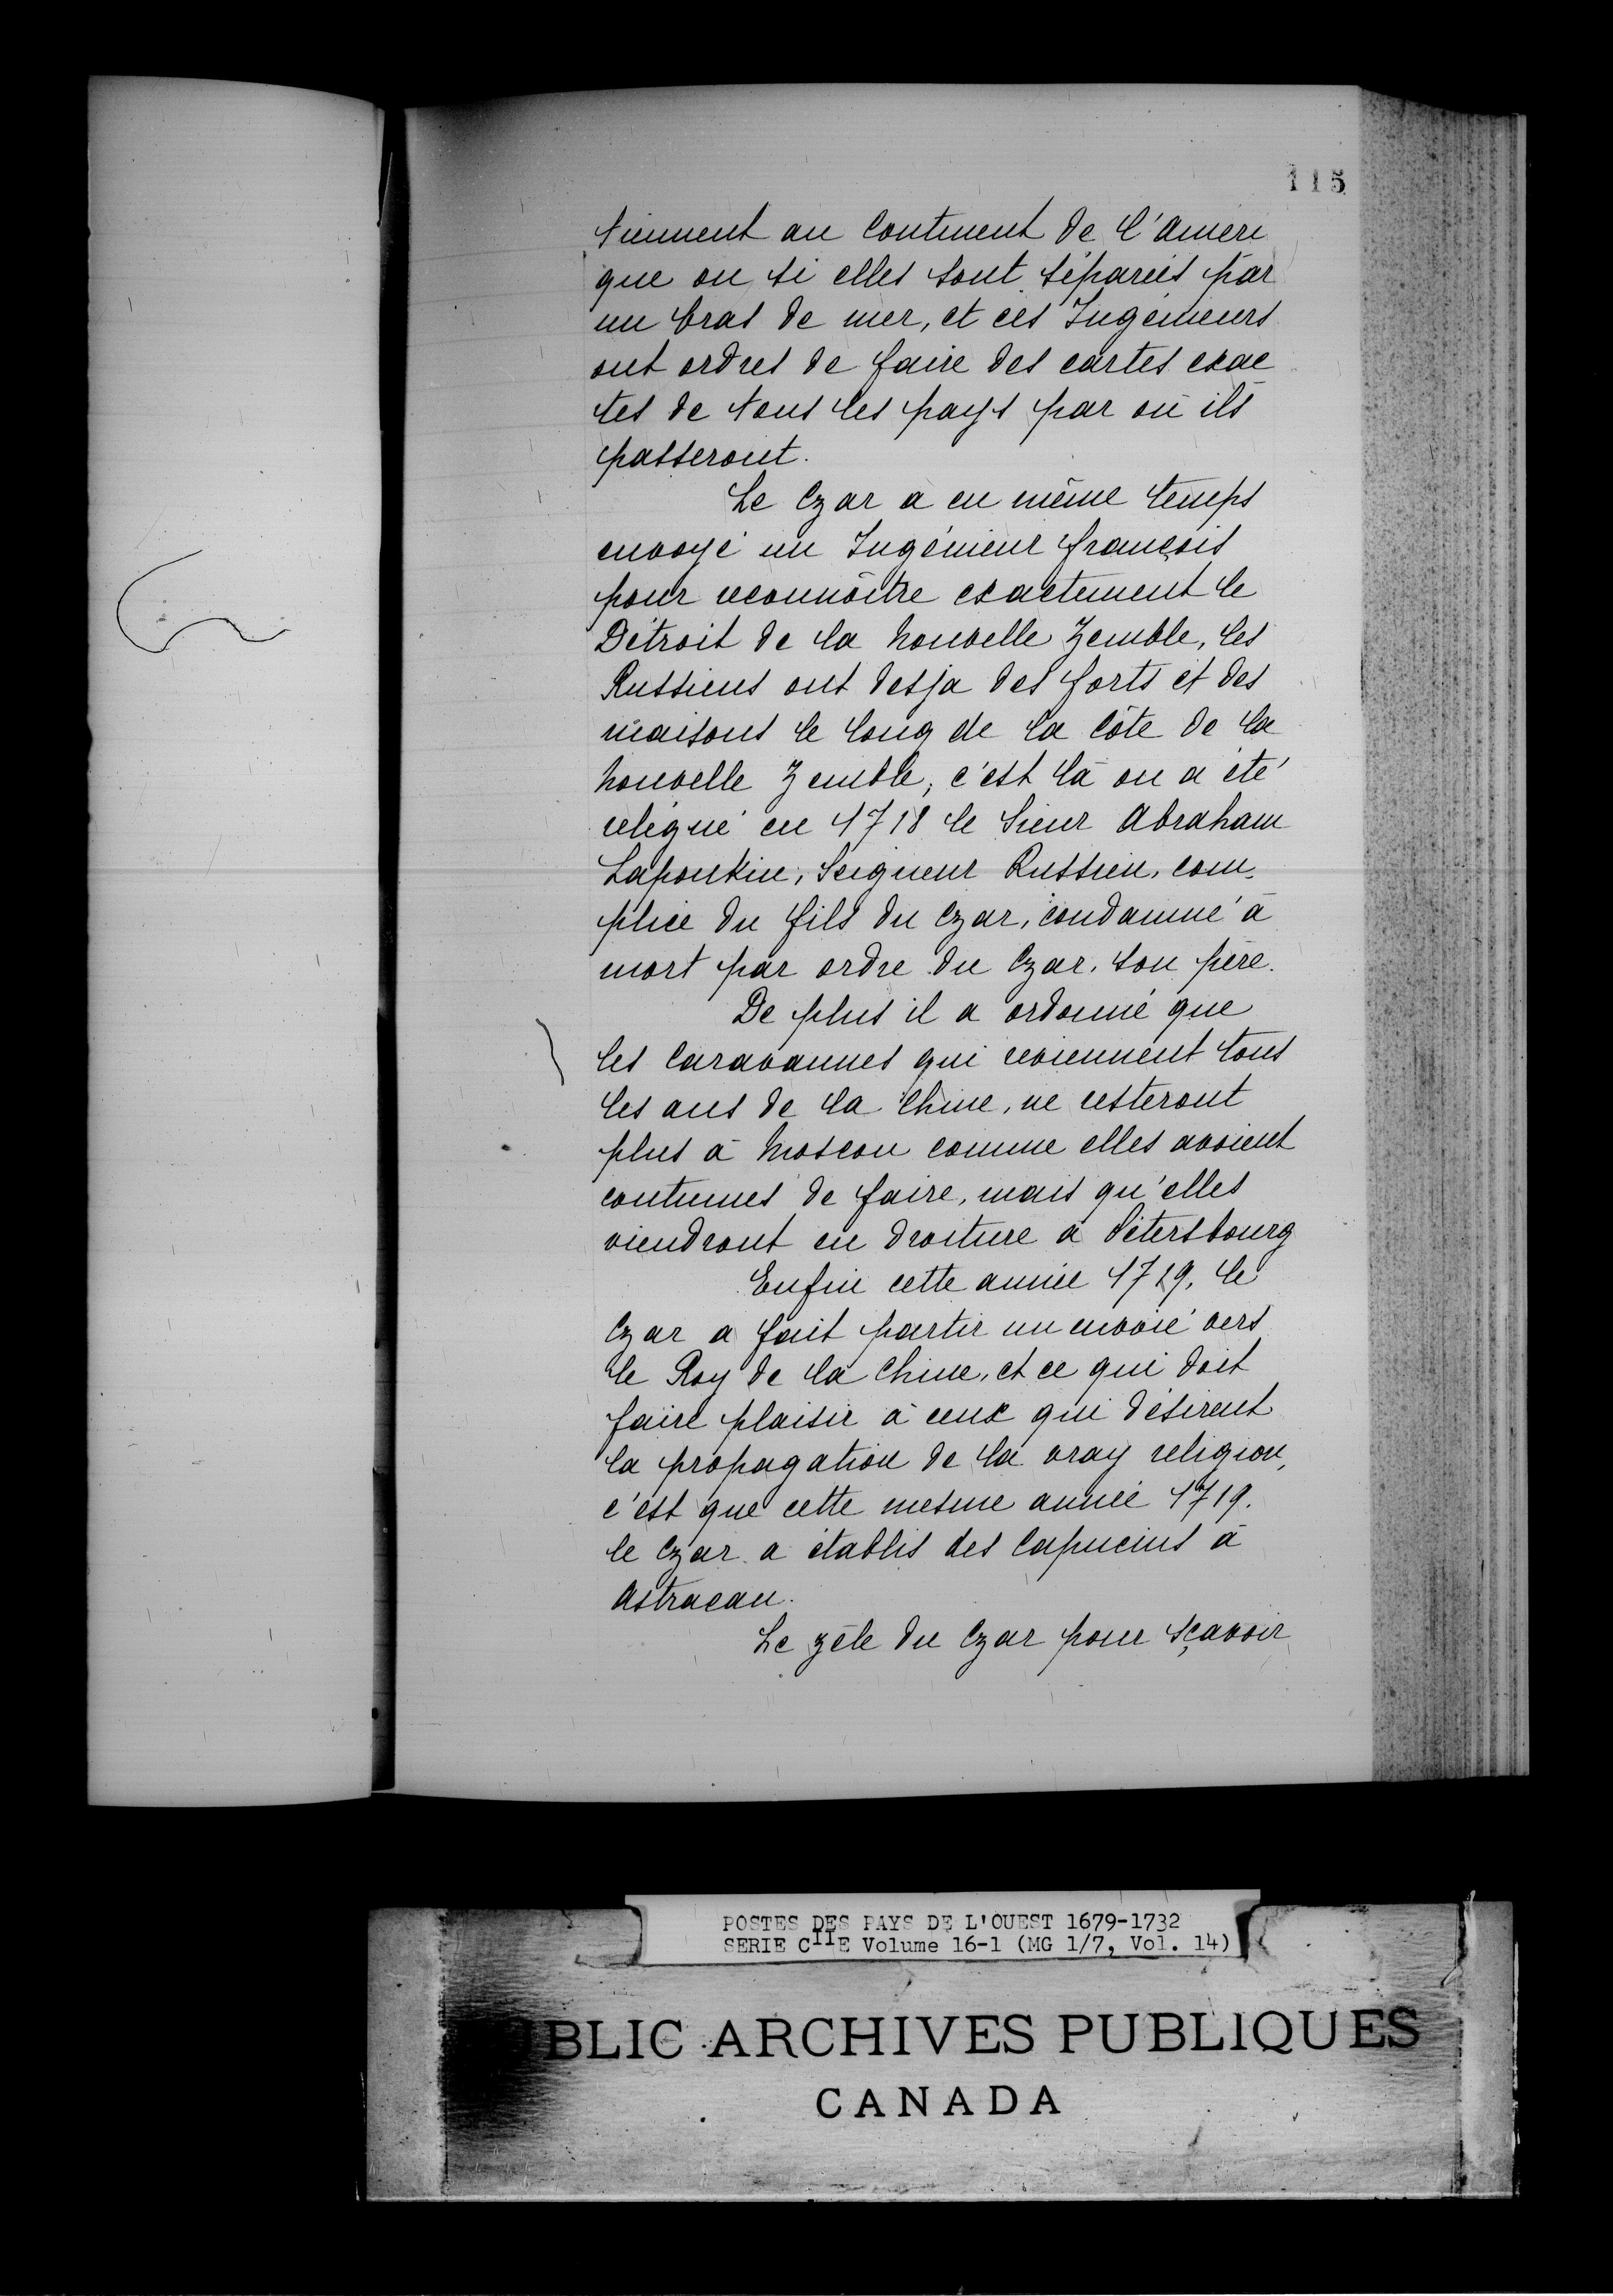 115
tiennent au Continent de l'Ameri
que ou si elles sont séparées par
un bras de mer, et ces Ingénieurs
ont ordres de faire des cartes exac
tes de tous les pays par où ils
passeront.
Le Czar a en même temps
envoyé un Ingénieur françois
pour reconnoître exactement le
Détroit de la Nouvelle Zemble, les
Russiens ont desja des forts et des
maisons le long de la Côte de la
Nouvelle Zemble, c'est là ou a été
relégué en 1718 le Sieur Abraham
Lapoukin, Seigneur Russien, com-
plice du fils du Czar, condamné à
mort par ordre du Czar, son père.
De plus il a ordonné que
les Caravannes qui reviennent tous
les ans de la Chine, ne resteront
plus à Moscou comme elles avoient
coutumes de faire, mais qu'elles
viendront en droiture à Pétersbourg
Enfin cette année 1719, le
Czar a fait partir un envoié vers
le Roy de la Chine, et ce qui doit
faire plaisir à ceux qui désirent
la propagation de la vray religion,
c'est que cette mesme année 1719.
le Czar a établis des Capucins à
Astracan.
Le zèle du Czar pour sçavoir
POSTES DES PAYS DE L'OUEST 1679-1732
SERIE CIIE Volume 16-1 (MG 1/7, Vol. 14)
BLIC ARCHIVES PUBLIQUES
CANADA